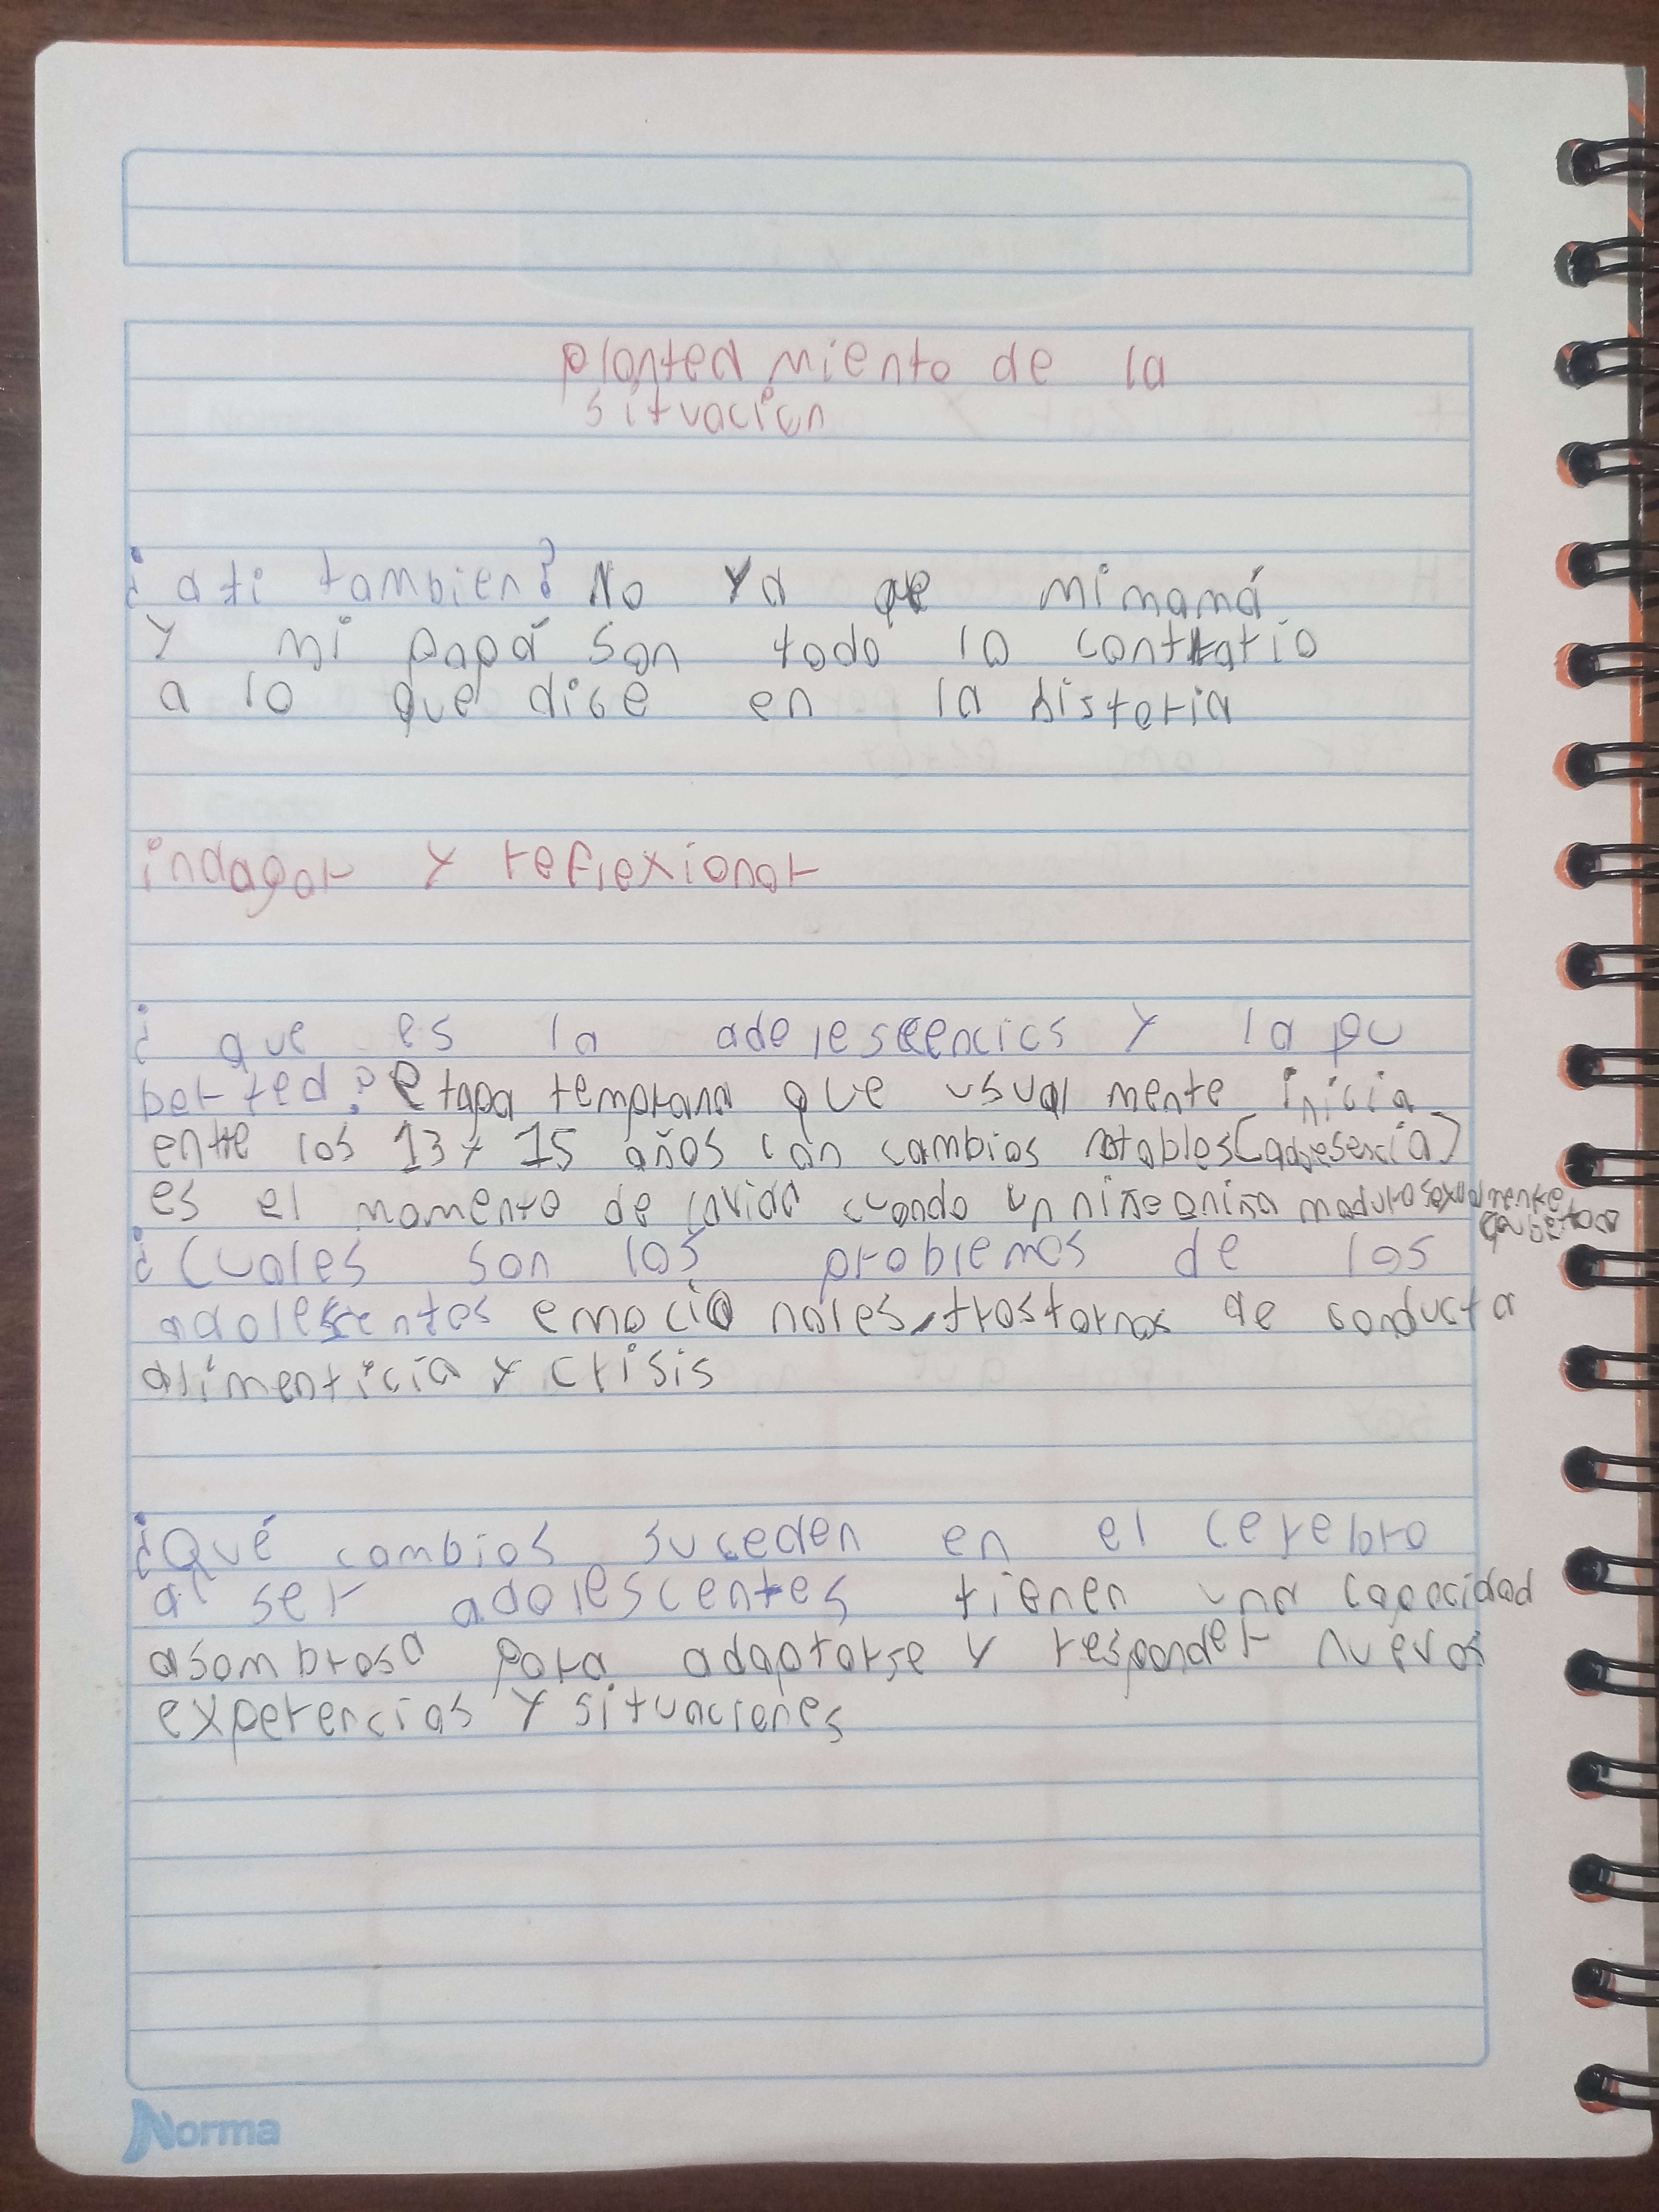 planteamiento de la
situacion
¿a ti tambien? No ya que mi mamá
y mi papá son todo lo contrario
a lo que dice en la historia
indagar y reflexionar
¿que es la adolesceencics y la pu
berted? etapa temprana que usual mente inicia
entre los 13 y 15 años con cambios notables
es el momento de la vida cuando un niño o niña madura sexualmente
¿Cuales son los problemas de los
adolescentes emocionales, trastornos de conducta
alimenticia y crisis
¿Qué cambios suceden en el cerebro
al ser adolescentes tienen una capacidad
asombrosa para adaptarse y responder nuevas
experencias y situaciones
Norma